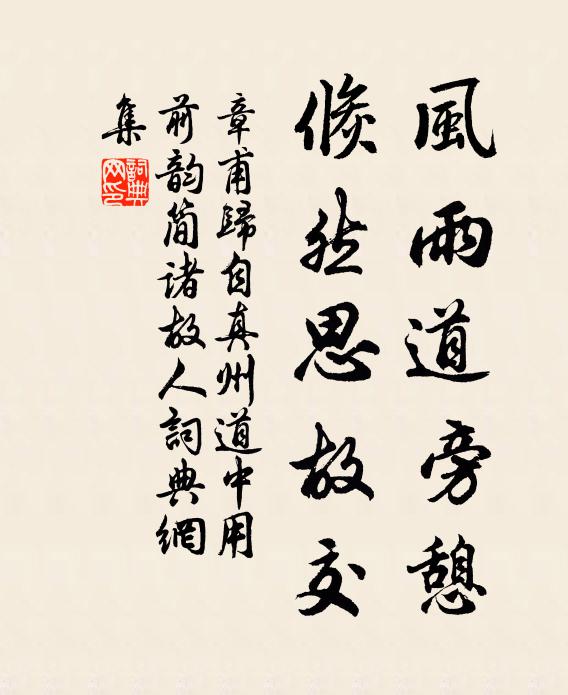 風雨道旁憩
倏然思故交
章甫歸自真州道中用
前韵簡诸故人詞典網
集
詞典網印